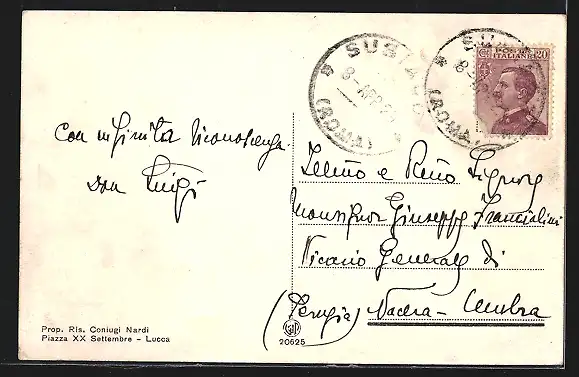 Con infinita riconoscenza
Don Luigi
Prop. Ris. Coniugi Nardi
Piazza XX Settembre - Lucca
SUBIACO
8-APR
(ROMA)
SU
8
(ROMA)
POSTE
ITALIANE
20
e Rev.mo Signor
Monsignor Giuseppe Franciolini
Vicario Generale di
(Perugia) Nocera-Umbra
20625